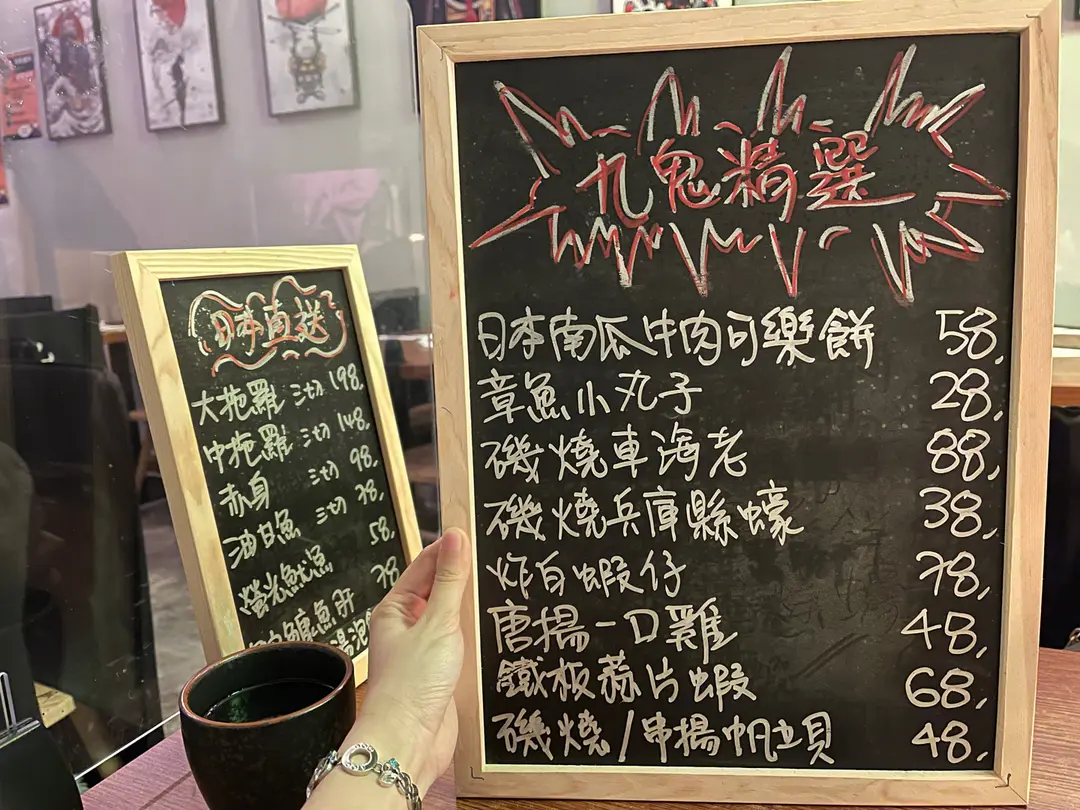 九鬼精選
日本南瓜牛肉可樂餅 58,
章魚小丸子 28,
磯燒車海老 88,
磯燒兵庫縣蠔 38,
炸白蝦仔 78,
唐揚一口雞 48,
鐵板蒜片蝦 68,
磯燒/串揚帆立貝 48,
日本直送
大拖羅 三切 198,
中拖羅 三切 148,
赤身 三切 98,
油甘魚 三切 78,
螢光魷魚 58,
鱇魚肝 78
湯泡